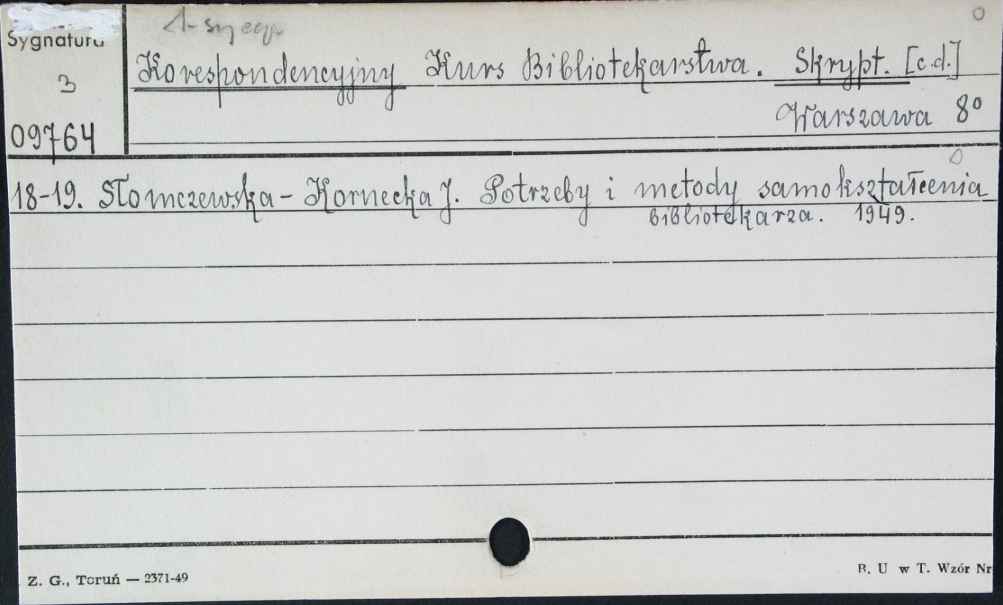 Sygnatura
3
09764
Korespondencyjny Kurs Bibliotekarstwa. Skrypt. [c.d.]
Warszawa 8°
18-19. Słomczewska - Kornecka J. Potrzeby i metody samokształcenia
bibliotekarza. 1949.
Z. G., Toruń — 2371-49
B. U w T. Wzór Nr